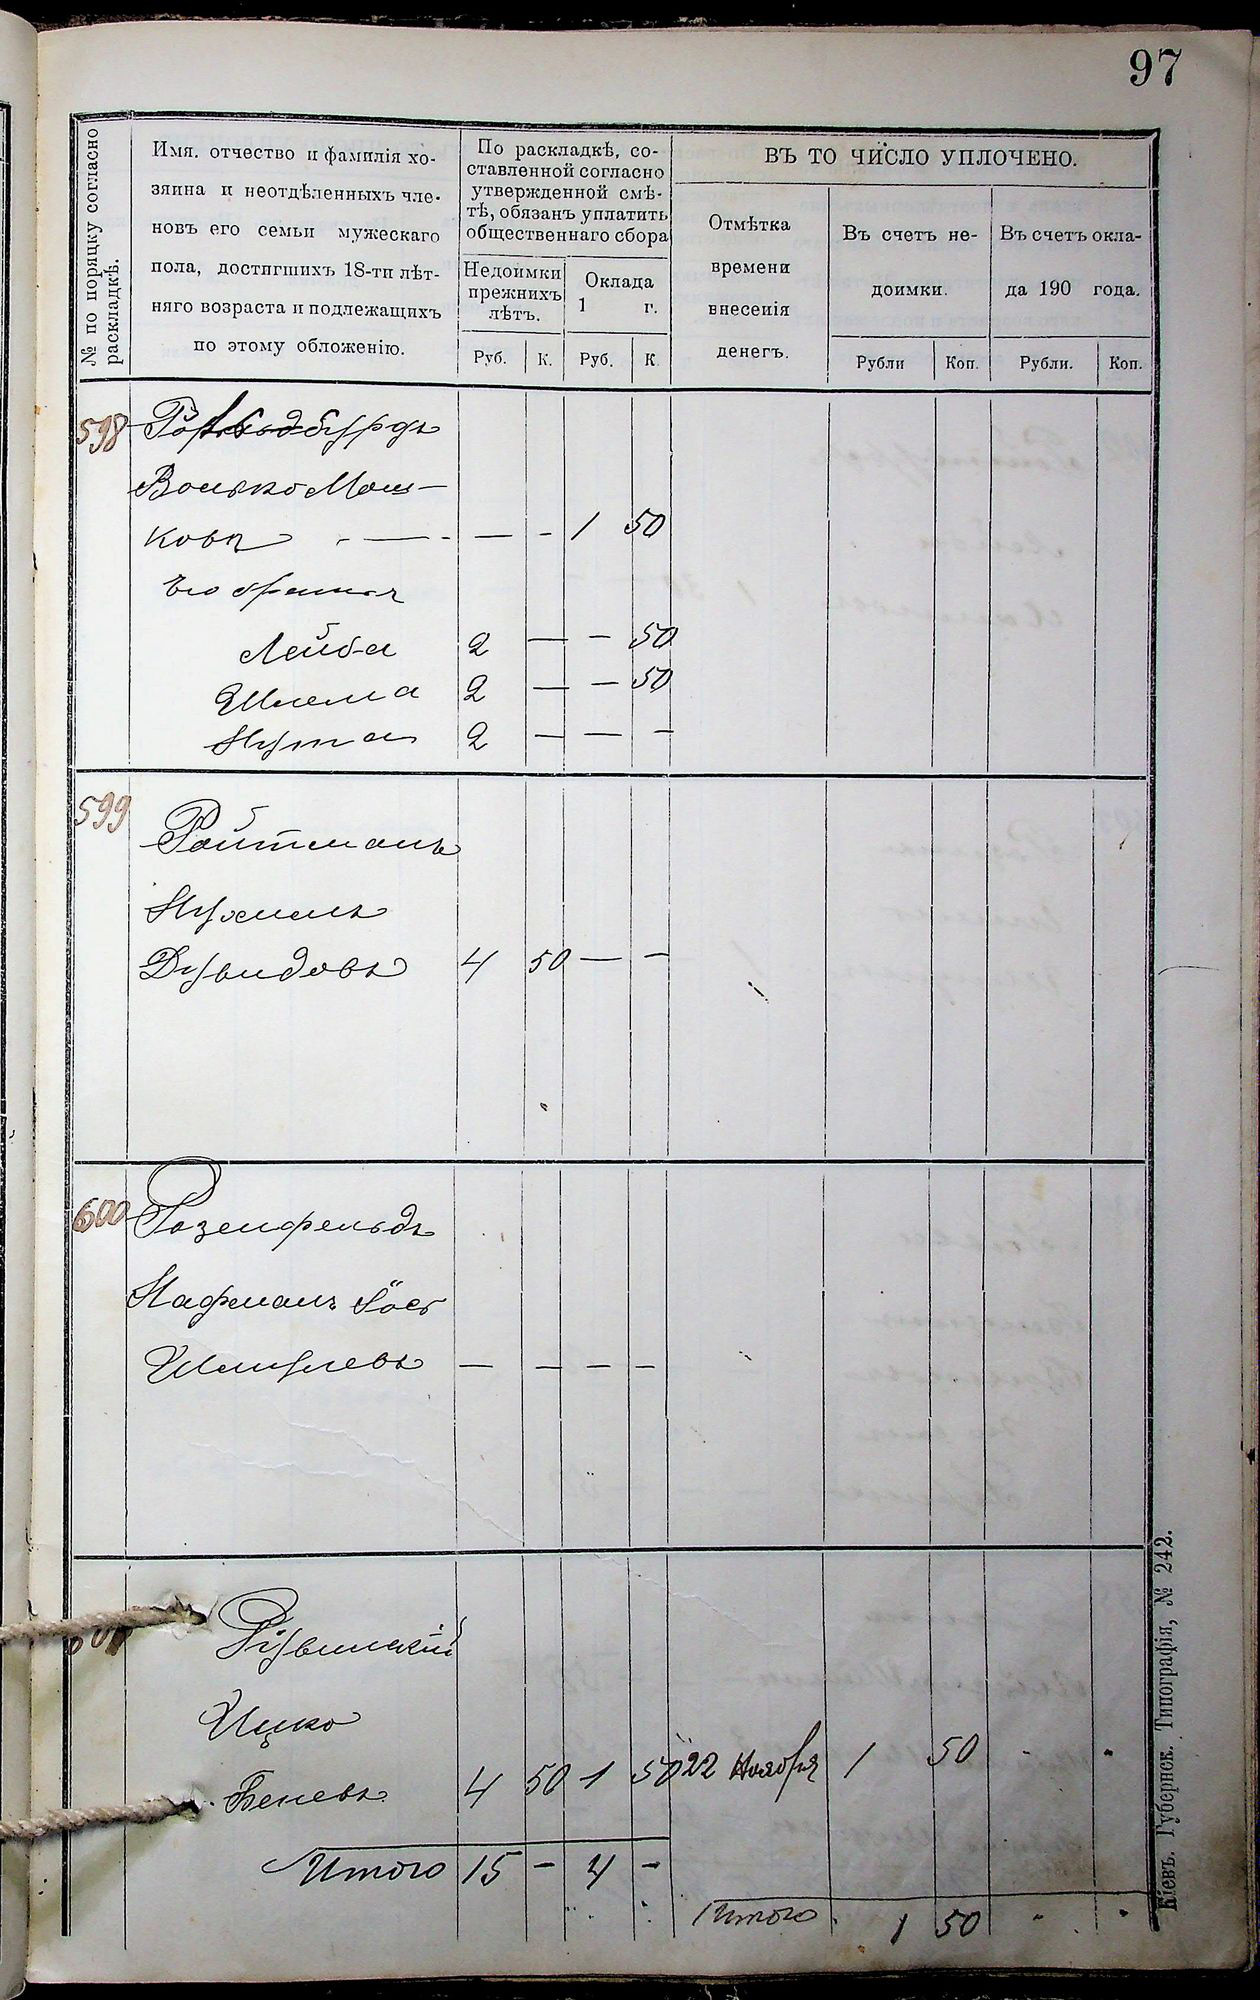 97
№ по поряцку согласно
раскладкѣ.
Имя. отчество и фамилія хо-
зяина и неотдѣленныхъ чле-
новъ его семьи мужескаго
пола, достигшихъ 18-ти лѣт-
няго возраста и подлежащихъ
по этому обложенію.
По раскладкѣ, со-
ставленной согласно
утвержденной смѣ-
тѣ, обязанъ уплатить
общественнаго сбора
Недоимки
прежнихъ
лѣтъ.
Оклада
1 г.
Руб. К. Руб. К
ВЪ ТО ЧИСЛО УПЛОЧЕНО.
Отмѣтка
времени
внесенія
денегъ.
Въ счетъ не-
доимки.
Въ счетъ окла-
да 190 года.
Рубли Коп. Рубли. Коп.
598
Волько Мош-
ковъ - — - — - 1 50
Его братья
Лейба 2 — — 50
Шлема 2 — — 50
Нута 2 — — —
599 Ройтманъ
Нухимъ
Дувидовъ 4 50 — —
600 Розенфельдъ
Нафманъ Іось
Шмулевъ — — — —
Рувинскій
Ицко
Беневъ 4 50 1 50 22 Ноября 1 50
Итого 15 — 4 —
Итого 1 50
Кіевъ. Губернск. Типографія, № 242.